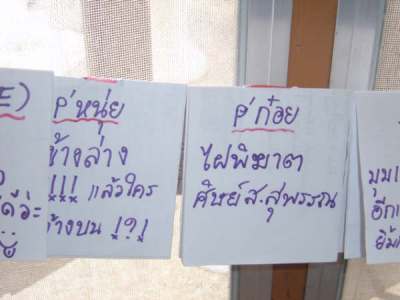 E)
ดีอ่ะ
P'หนุ่ย
ข้างล่าง
!!!! แล้วใคร
ข้างบน !?!
P'ก๋อย
ไฝพิฆาต
ศิษย์ส.สุพรรณ
มุม
อีก
ยิ้ม